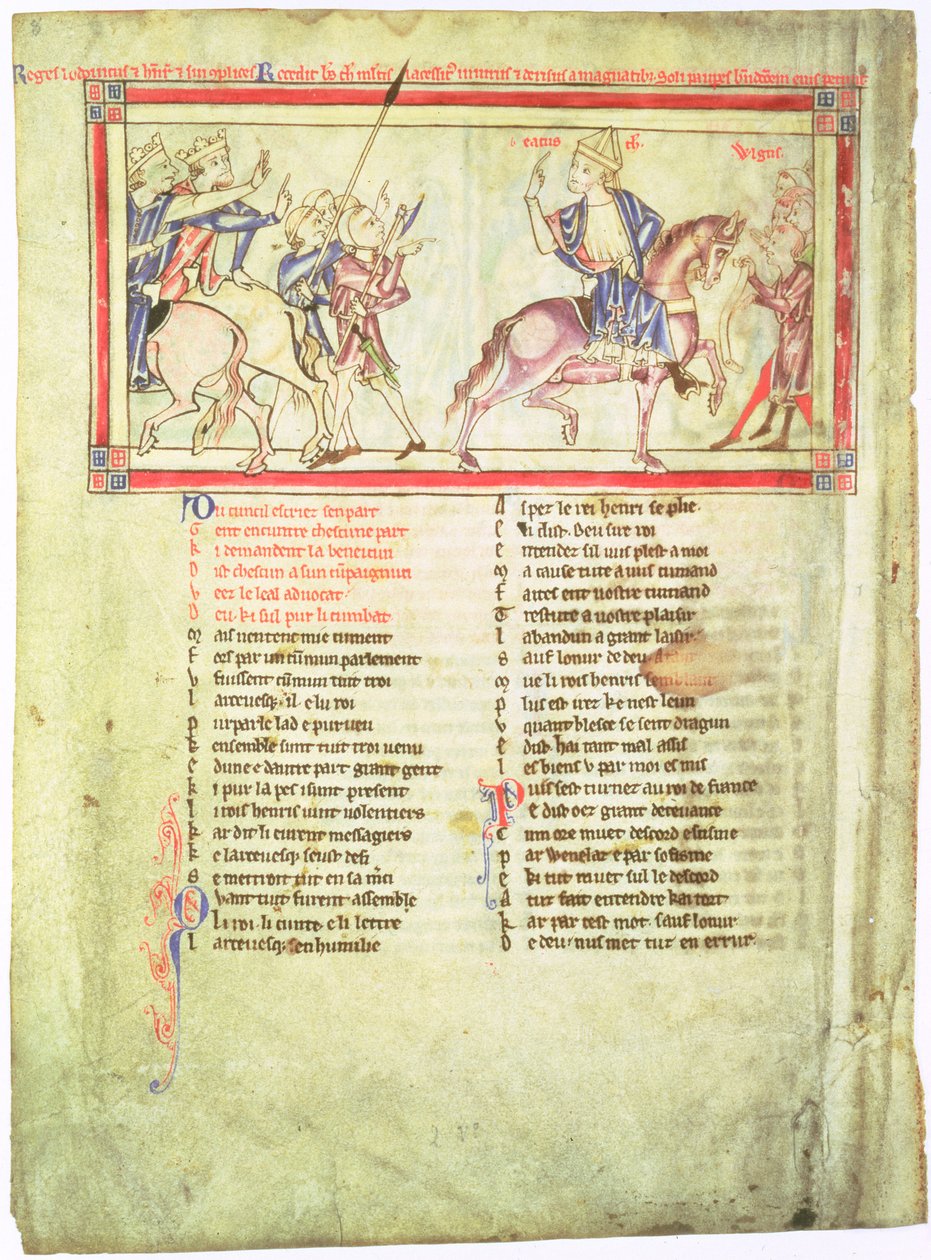 Reges Lodovicus & henr & sui 9plices Recedit bs th mestis lacessit minis & derisus a magnatib; Soli paupes bndcoem eius petunt
beatus th.
Wlgus.
Du cuncil escriez sen part
Gent encuntre chescune part
ki demandent la beneicun
Dist chescun a sun cumpaignun
Veez le leal advocat
Deu ki sul pur li cumbat
Mais ventent mie cument
Fors par un cumun parlement
Vfussent cumun tut troi
Larcevesq; il e li roi
Purparle lad e purveu
Kensemble sunt tuit troi venu
E dune e dautre part grant gent
Ki pur la pes i sunt present
Li rois henris vint volentiers
Kar dit li eurent messagers
Ke larcevesq; senz defi
Se mettroit tut en sa mci
Quant tuit furent assemble
Li roi li cunte e li lettre
Larcevesq; sen humilie
As pez le rei henri se plie.
E li dist. Deu sire roi
Entendez sil vus plest a moi
Ma cause tute a vus cumand
Faites ent vostre cumand
Trestute a vostre plaisir
Labandun a grant laisir.
Sauf lonur de deu. Atant
Mue li rois henris semblant
Plus est irez ke nest leun
V quant blesce se sent dragun
E dist. hai tant mal assis
Les biens v par moi es mis
Puis sest turnez au roi de France
E dist oez grant decevance
Cum ore muet descord e scisme
Par Wenelas e par sofisme
E ki tut muet sul le descord
A tut fait entendre kai tort
Kar par cest mot. sauf lonur
De deu. nus met tut en errur.
2 v°